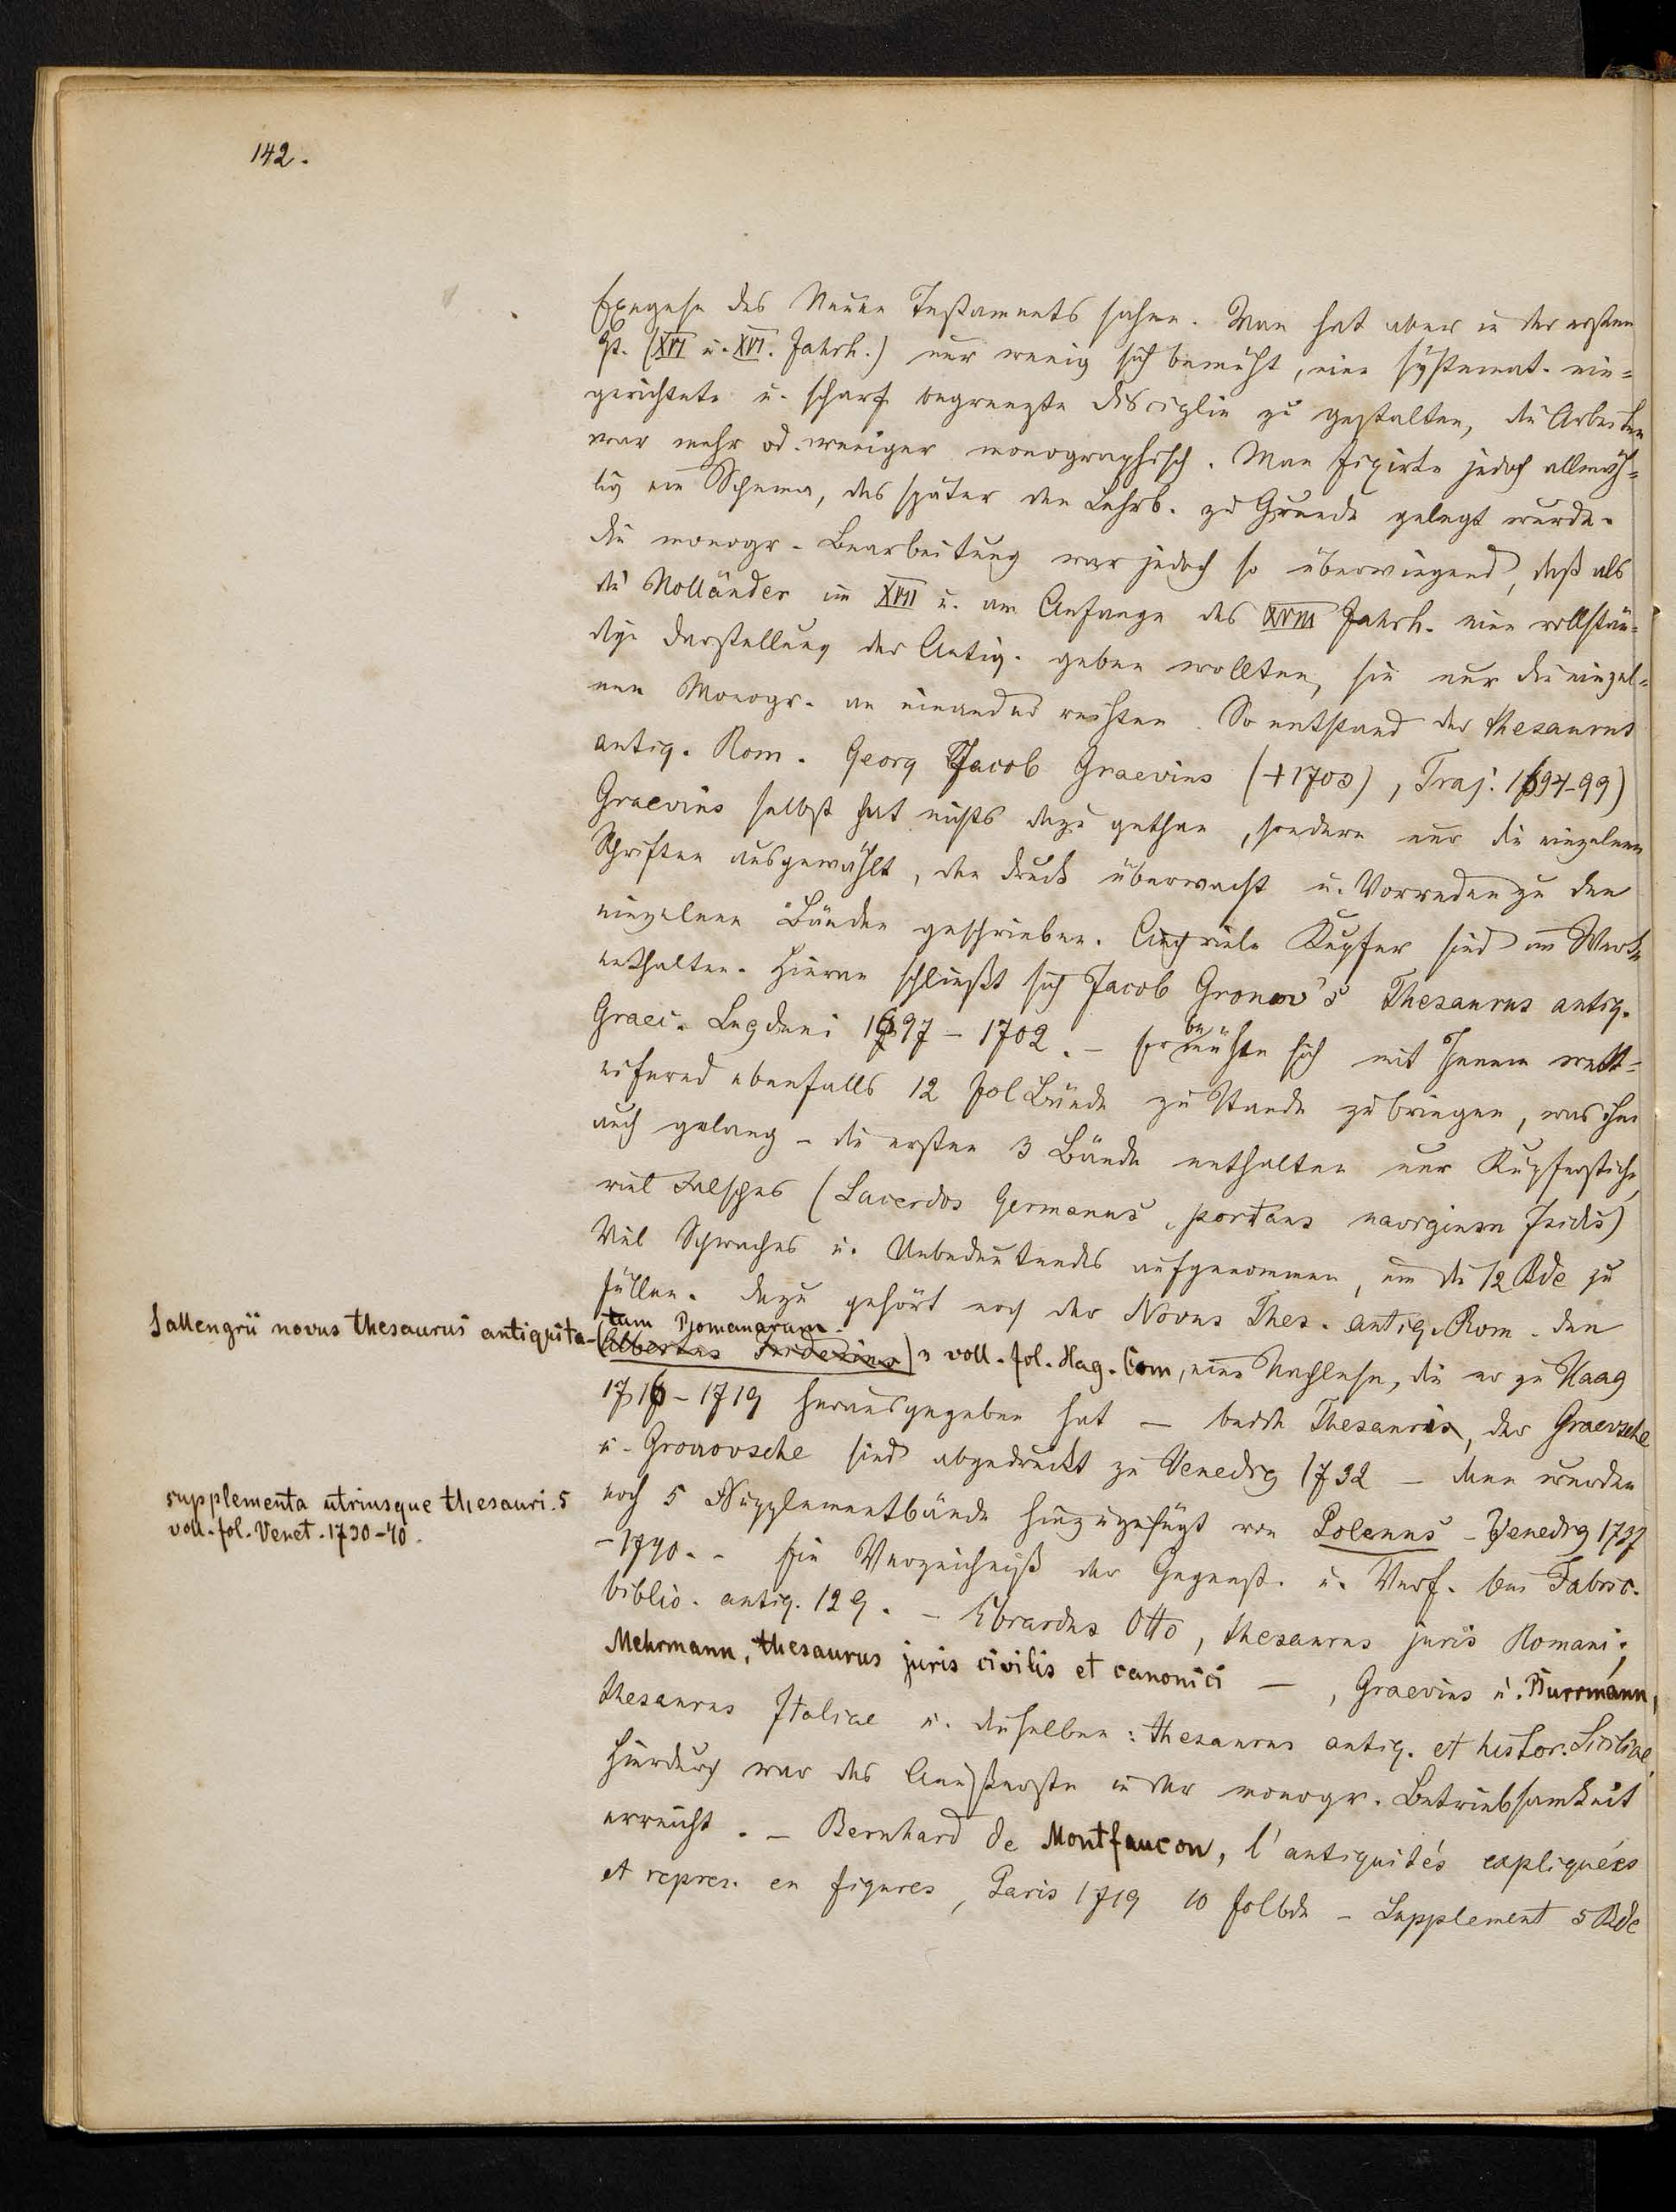 142.
Exegese des Neuen Testaments sahen. Man hat aber in der ersten
Zt. (XVI u. XVI. Jahrh.) nur wenig sich bemüht, eine systemat. ein=
gerichtete u. scharf begrenzte Disciplin zu gestalten, die Arbeiten
war mehr od. weniger monographisch. Man fixirte jedoch allmäh=
lig ein Schema, das später den Lehrb. zu Grunde gelegt wurde.
Die monogr. Bearbeitung war jedoch so überwiegend, daß als
die Holländer im XVII u. am Anfange des XVIII Jahrh. eine vollstän=
dige Darstellung der Antiq. geben wollten, sie nur die einzel=
nen Monogr. an einander reihten. So entstand der thesaurus
antiq. Rom. Georg Jacob Graevius (+1703), Traj. 1694-99)
Graevius selbst hat nichts dazu gethan, sondern nur die einzelnen
Schriften ausgewählt, den Druck überwacht u. Vorreden zu den
einzelnen Bänden geschrieben. Auch viele Kupfer sind im Werke
enthalten. Hieran schließt sich Jacob Gronov's Thesaurus antiq.
Graec. Lugduni 1697-1702. - Er bemühte sich mit Jenem wett=
eifernd ebenfalls 12 fol Bände zu Stande zu bringen, was ihm
auch gelang - die ersten 3 Bände enthalten nur Kupferstiche,
viel Falsches (Sacerdos Germanus, portans navigium Isidis)
Viel Schwaches u. Unbedeutendes aufgenommen, um die 12 Bde zu
füllen. Dazu gehört noch der Novus Thes. antiq. Rom. den
Sallengrii novus thesaurus antiquita-
tum Romanarum.
(Albertus) 3 voll. fol. Hag. Com, eine Nachlese, die er zu Haag
1716-1719 herausgegeben hat - beide Thesauri, der Graevsche
u. Gronovsche sind abgedruckt zu Venedig 1732 - denen wurden
supplementa utriusque thesauri. 5
voll. fol. Venet. 1730-40.
noch 5 Supplementbände hinzugefügt von Polenus - Venedig 1737
-1740. - Ein Verzeichniß der Gegenst. u. Verf. bei Fabric.
biblio. antiq. 129. - Ebrardus Otto, thesaurus juris Romani;
Mehrmann, thesaurus juris civilis et canonici - , Graevius u. Burrmann,
thesaurus Italiae u. dieselben: thesaurus antiq. et histor. Siciliae.
Hierdurch war das Aeußerste in der monogr. Betriebsamkeit
erreicht. - Bernhard de Montfaucon, l'antiquités expliquées
et repres. en figures, Paris 1719 10 folbde - Supplement 5 Bde